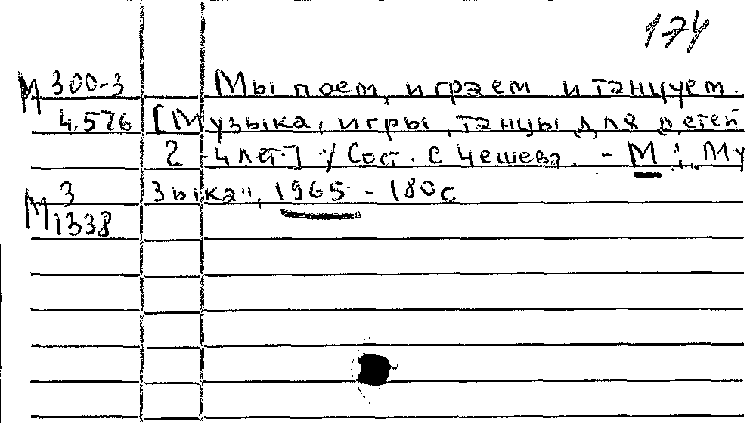 174
М 300-3 Мы поем, играем и танцуем.
4.576 [Музыка, игры, танцы для детей
2-4 лет] / Сост. С Чешева. - М.: „Му
М 3 зыка", 1965 - 180с
1338